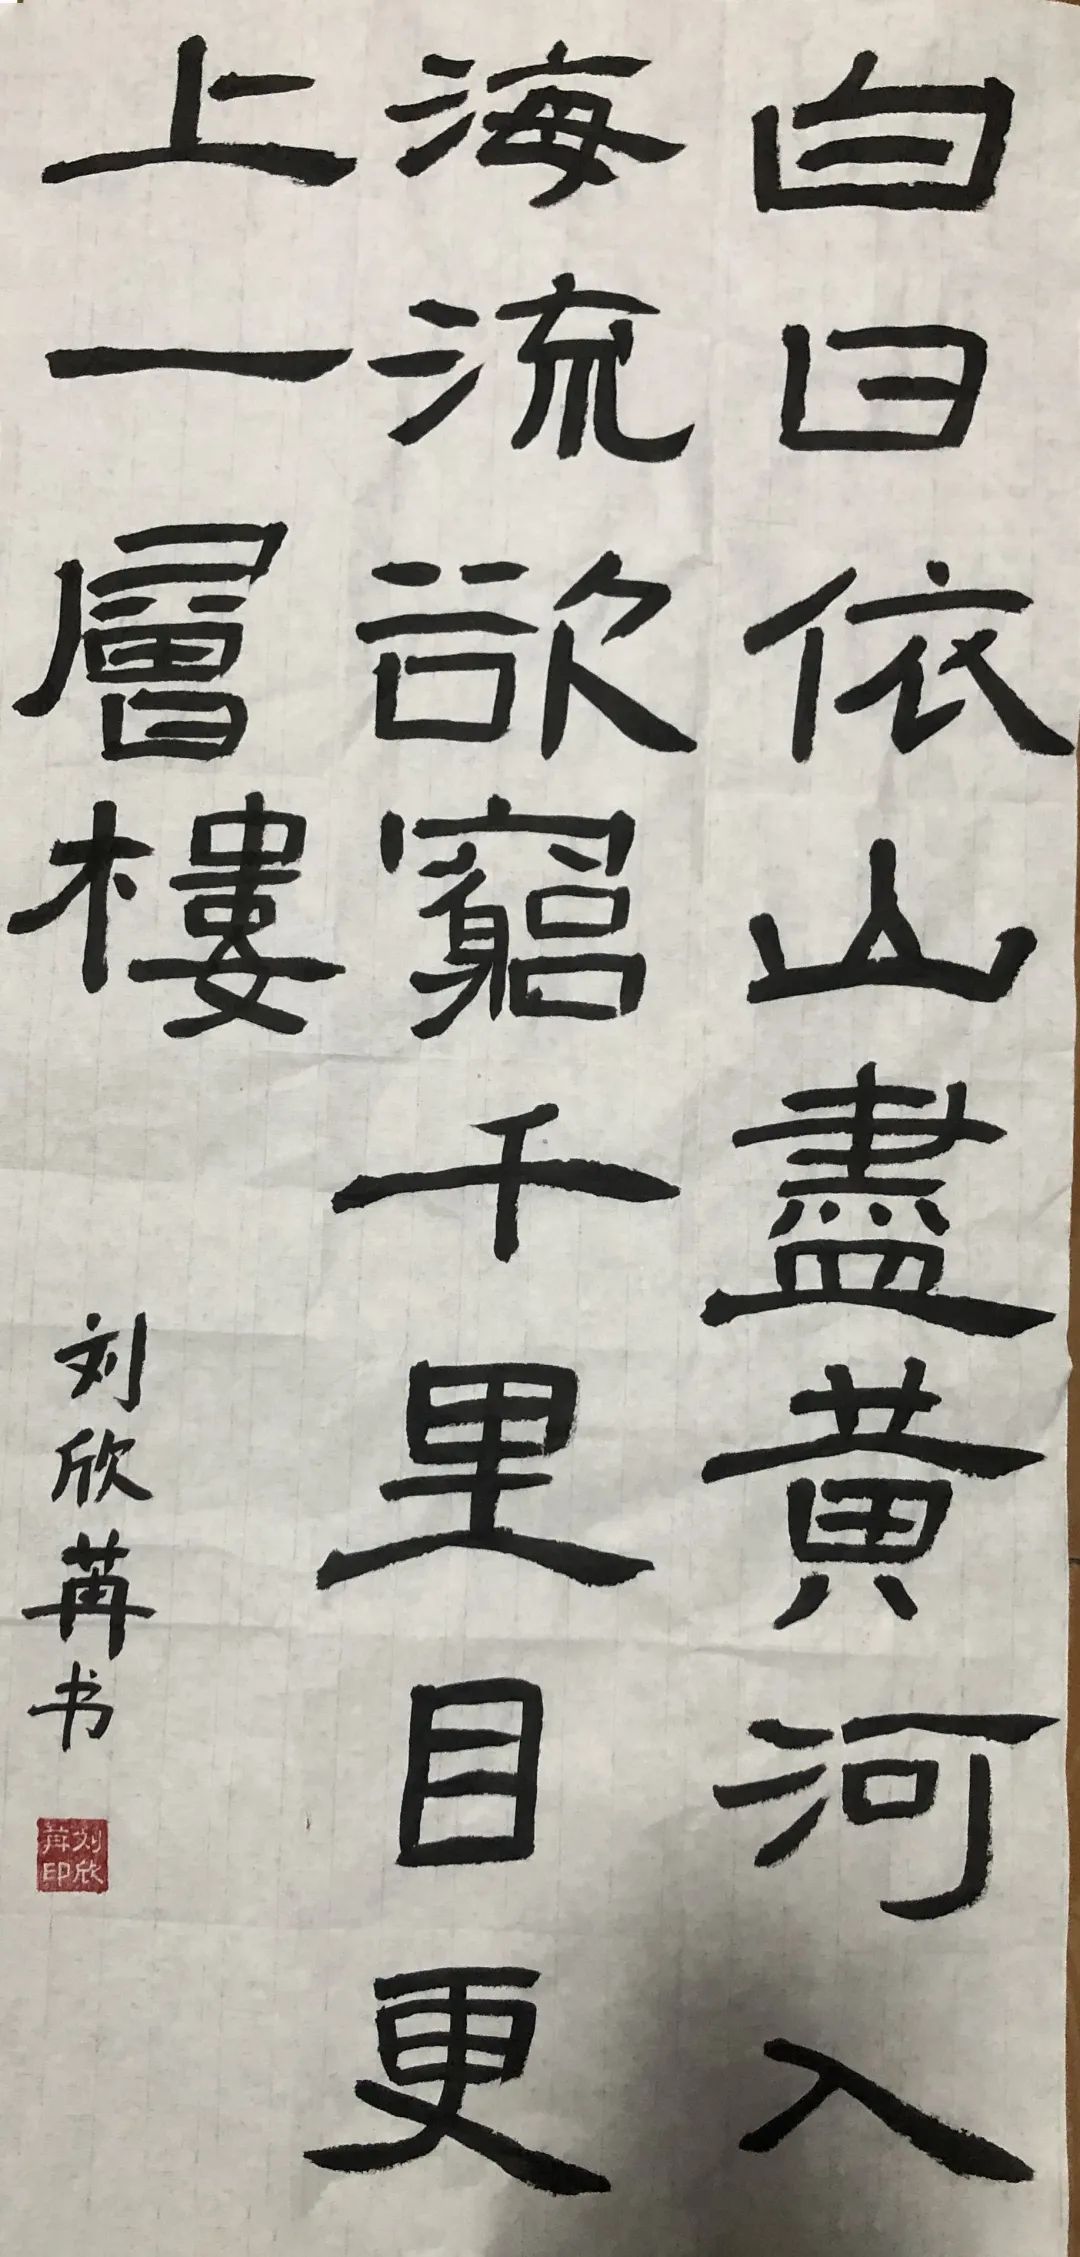 白日依山盡黄河入
海流欲窮千里目更
上一層樓
刘欣苒书
刘欣苒印